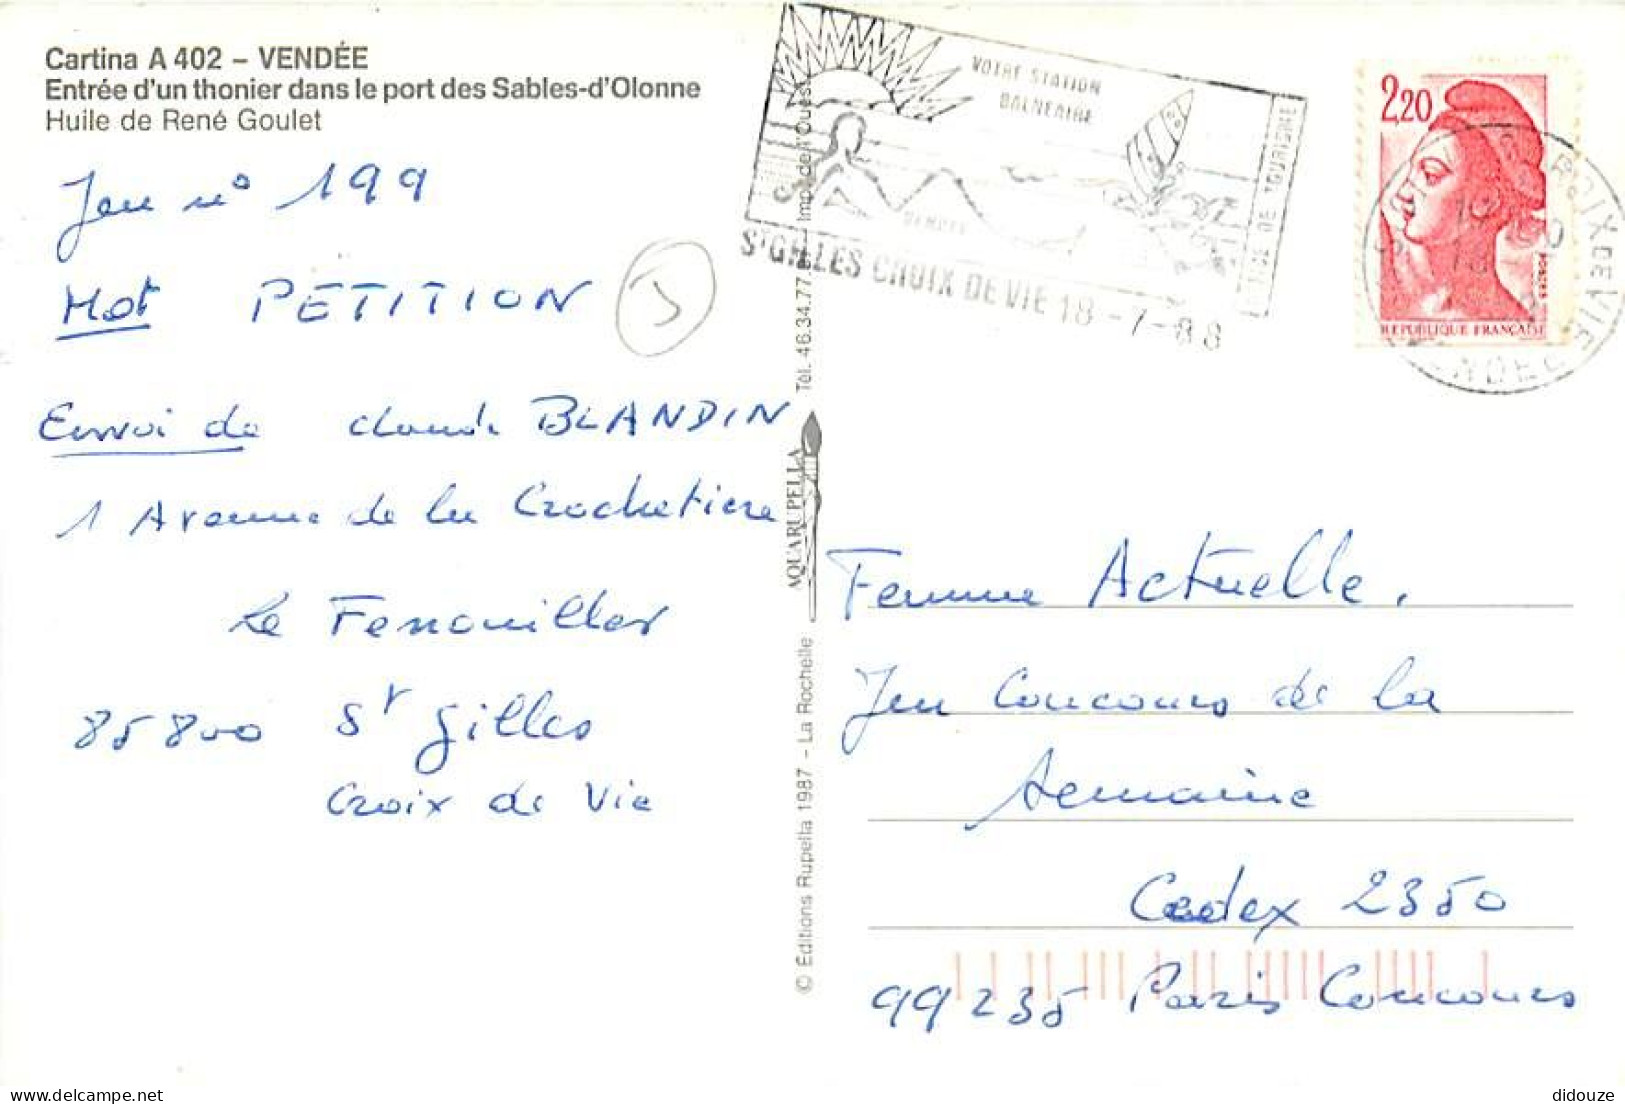 Cartina A 402 – VENDÉE
Entrée d'un thonier dans le port des Sables-d'Olonne
Huile de René Goulet
Jeu n° 199
Mot PETITION
J
Envoi de Claude BLANDIN
1 Avenue de la Crochetiere
Le Fenouiller
85800 St Gilles
Croix de Vie
VOTRE STATION
BALNEAIRE
OFFICE DE TOURISME
VENDEE
St GILLES CROIX DE VIE 18-7-88
2,20
REPUBLIQUE FRANÇAISE
Tél. 46.34.77.
Imp. de l'Ouest
AQUARUPELLA
© Éditions Rupella 1987 - La Rochelle
Femme Actuelle.
Jeu Concours de la
semaine
Cedex 2350
99235 Paris Concours
didouze